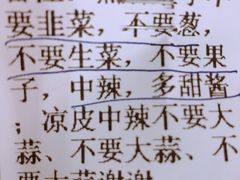 要韭菜，不要葱，
不要生菜，不要果
子，中辣，多甜酱
；凉皮中辣不要大
蒜、不要大蒜、不
要大蒜谢谢